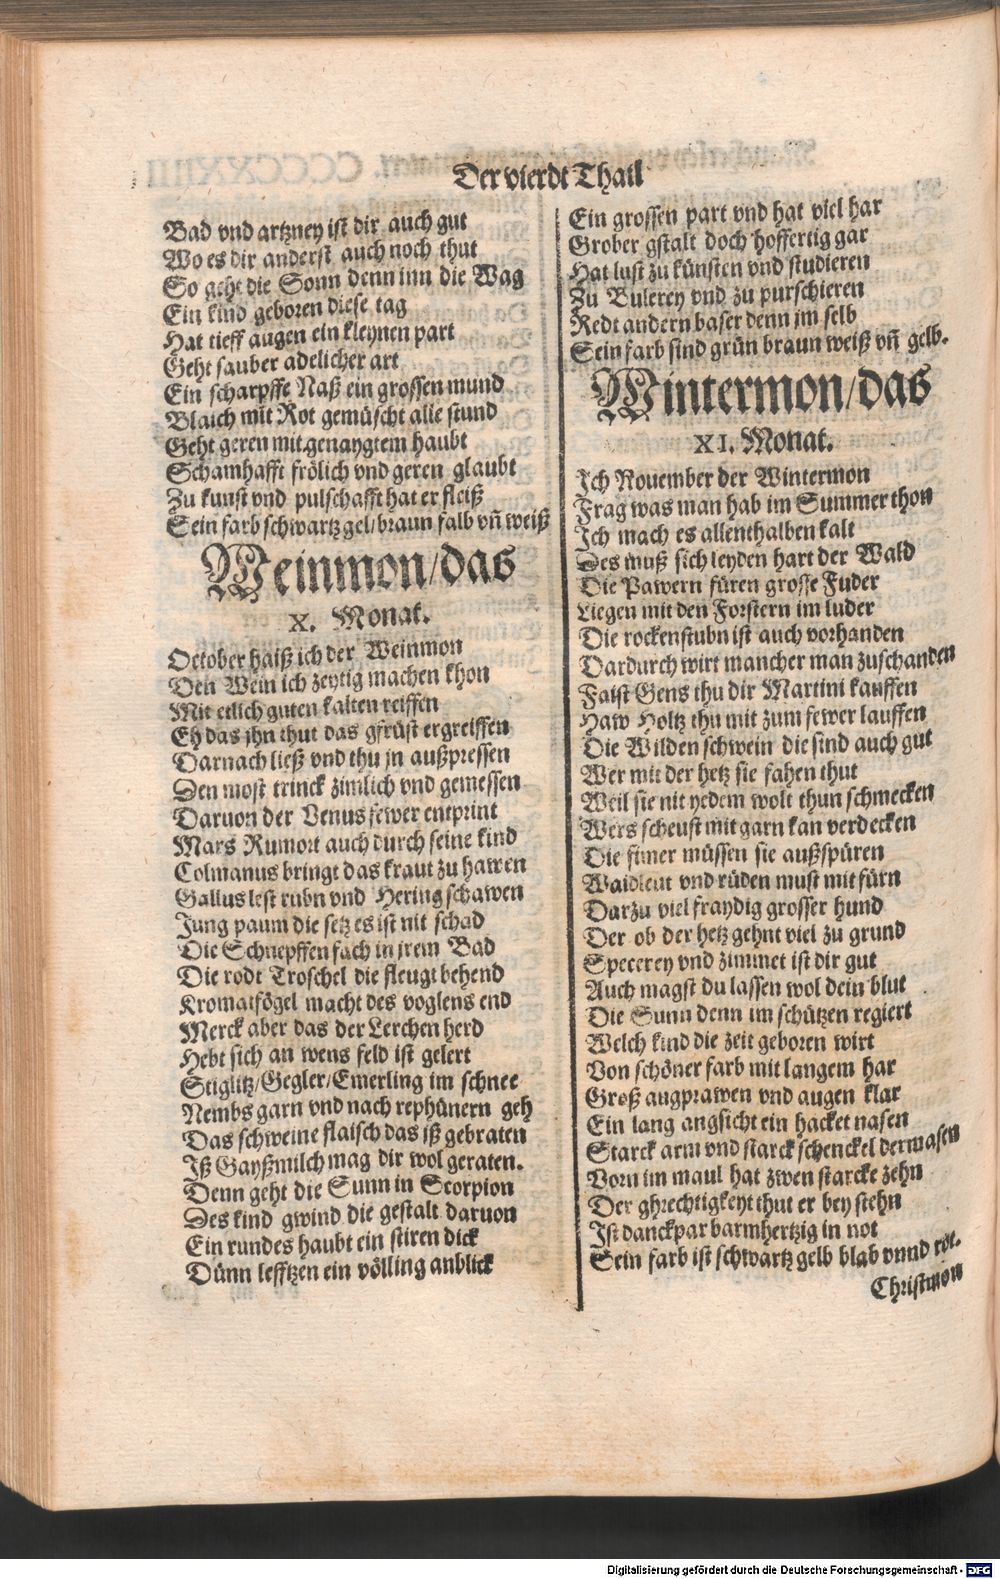 Der vierdt Thail
Bad vnd artzney ist dir auch gut
Wo es dir anderst auch noch thut
So geht die Sonn denn inn die Wag
Ein kind geboren diese tag
Hat tieff augen ein kleynen part
Geht sauber adelicher art
Ein scharpffe Naß ein grossen mund
Blaich mit Rot gemüscht alle stund
Geht geren mit genaygtem haubt
Schamhafft frölich vnd geren glaubt
Zu kunst vnd pulschafft hat er fleiß
Sein farb schwartz gel/braun falb vñ weiß
Weinmon/das
X. Monat.
October haiß ich der Weinmon
Den Wein ich zeytig machen khon
Mit etlich guten kalten reiffen
Eh das jhn thut das gfrüst ergreiffen
Darnach ließ vnd thu jn außpressen
Den most trinck zimlich vnd gemessen
Daruon der Venus fewer entprint
Mars Rumort auch durch seine kind
Colmanus bringt das kraut zu hawen
Gallus lest rubn vnd Hering schawen
Jung paum die setz es ist nit schad
Die Schnepffen fach in jrem Bad
Die rodt Troschel die fleugt behend
Kromatfögel macht des voglens end
Merck aber das der Lerchen herd
Hebt sich an wens feld ist gelert
Stiglitz/Gegler/Emerling im schnee
Nembs garn vnd nach rephünern geh
Das schweine flaisch das iß gebraten
Iß Gayßmilch mag dir wol geraten.
Denn geht die Sunn in Scorpion
Des kind gwind die gestalt daruon
Ein rundes haubt ein stiren dick
Dünn lefftzen ein völling anblick
Ein grossen part vnd hat viel har
Grober gstalt doch hoffertig gar
Hat lust zu künsten vnd studieren
Zu Bulerey vnd zu purschieren
Redt andern baser denn jm selb
Sein farb sind grün braun weiß vñ gelb.
Wintermon/das
XI. Monat.
Ich Nouember der Wintermon
Frag was man hab im Summer thon
Ich mach es allenthalben kalt
Des muß sich leyden hart der Wald
Die Pawern füren grosse Fuder
Liegen mit den Forstern im luder
Die rockenstubn ist auch vorhanden
Dardurch wirt mancher man zuschanden
Faist Gens thu dir Martini kauffen
Haw Holtz thu mit zum fewer lauffen
Die Wilden schwein die sind auch gut
Wer mit der hetz sie fahen thut
Weil sie nit yedem wolt thun schmecken
Wers scheust mit garn kan verdecken
Die finer müssen sie außspüren
Waidleut vnd rüden must mit fürn
Darzu viel fraydig grosser hund
Der ob der hetz gehnt viel zu grund
Specerey vnd zimmet ist dir gut
Auch magst du lassen wol dein blut
Die Sunn denn im schützen regiert
Welch kind die zeit geboren wirt
Von schöner farb mit langem har
Groß augprawen vnd augen klar
Ein lang angsicht ein hacket nasen
Starck arm vnd starck schenckel dermasen
Vorn im maul hat zwen starcke zehn
Der ghrechtigkeyt thut er bey stehn
Ist danckpar barmhertzig in not
Sein farb ist schwartz gelb blab vnnd rot.
Christmon
Digitalisierung gefördert durch die Deutsche Forschungsgemeinschaft - DFG